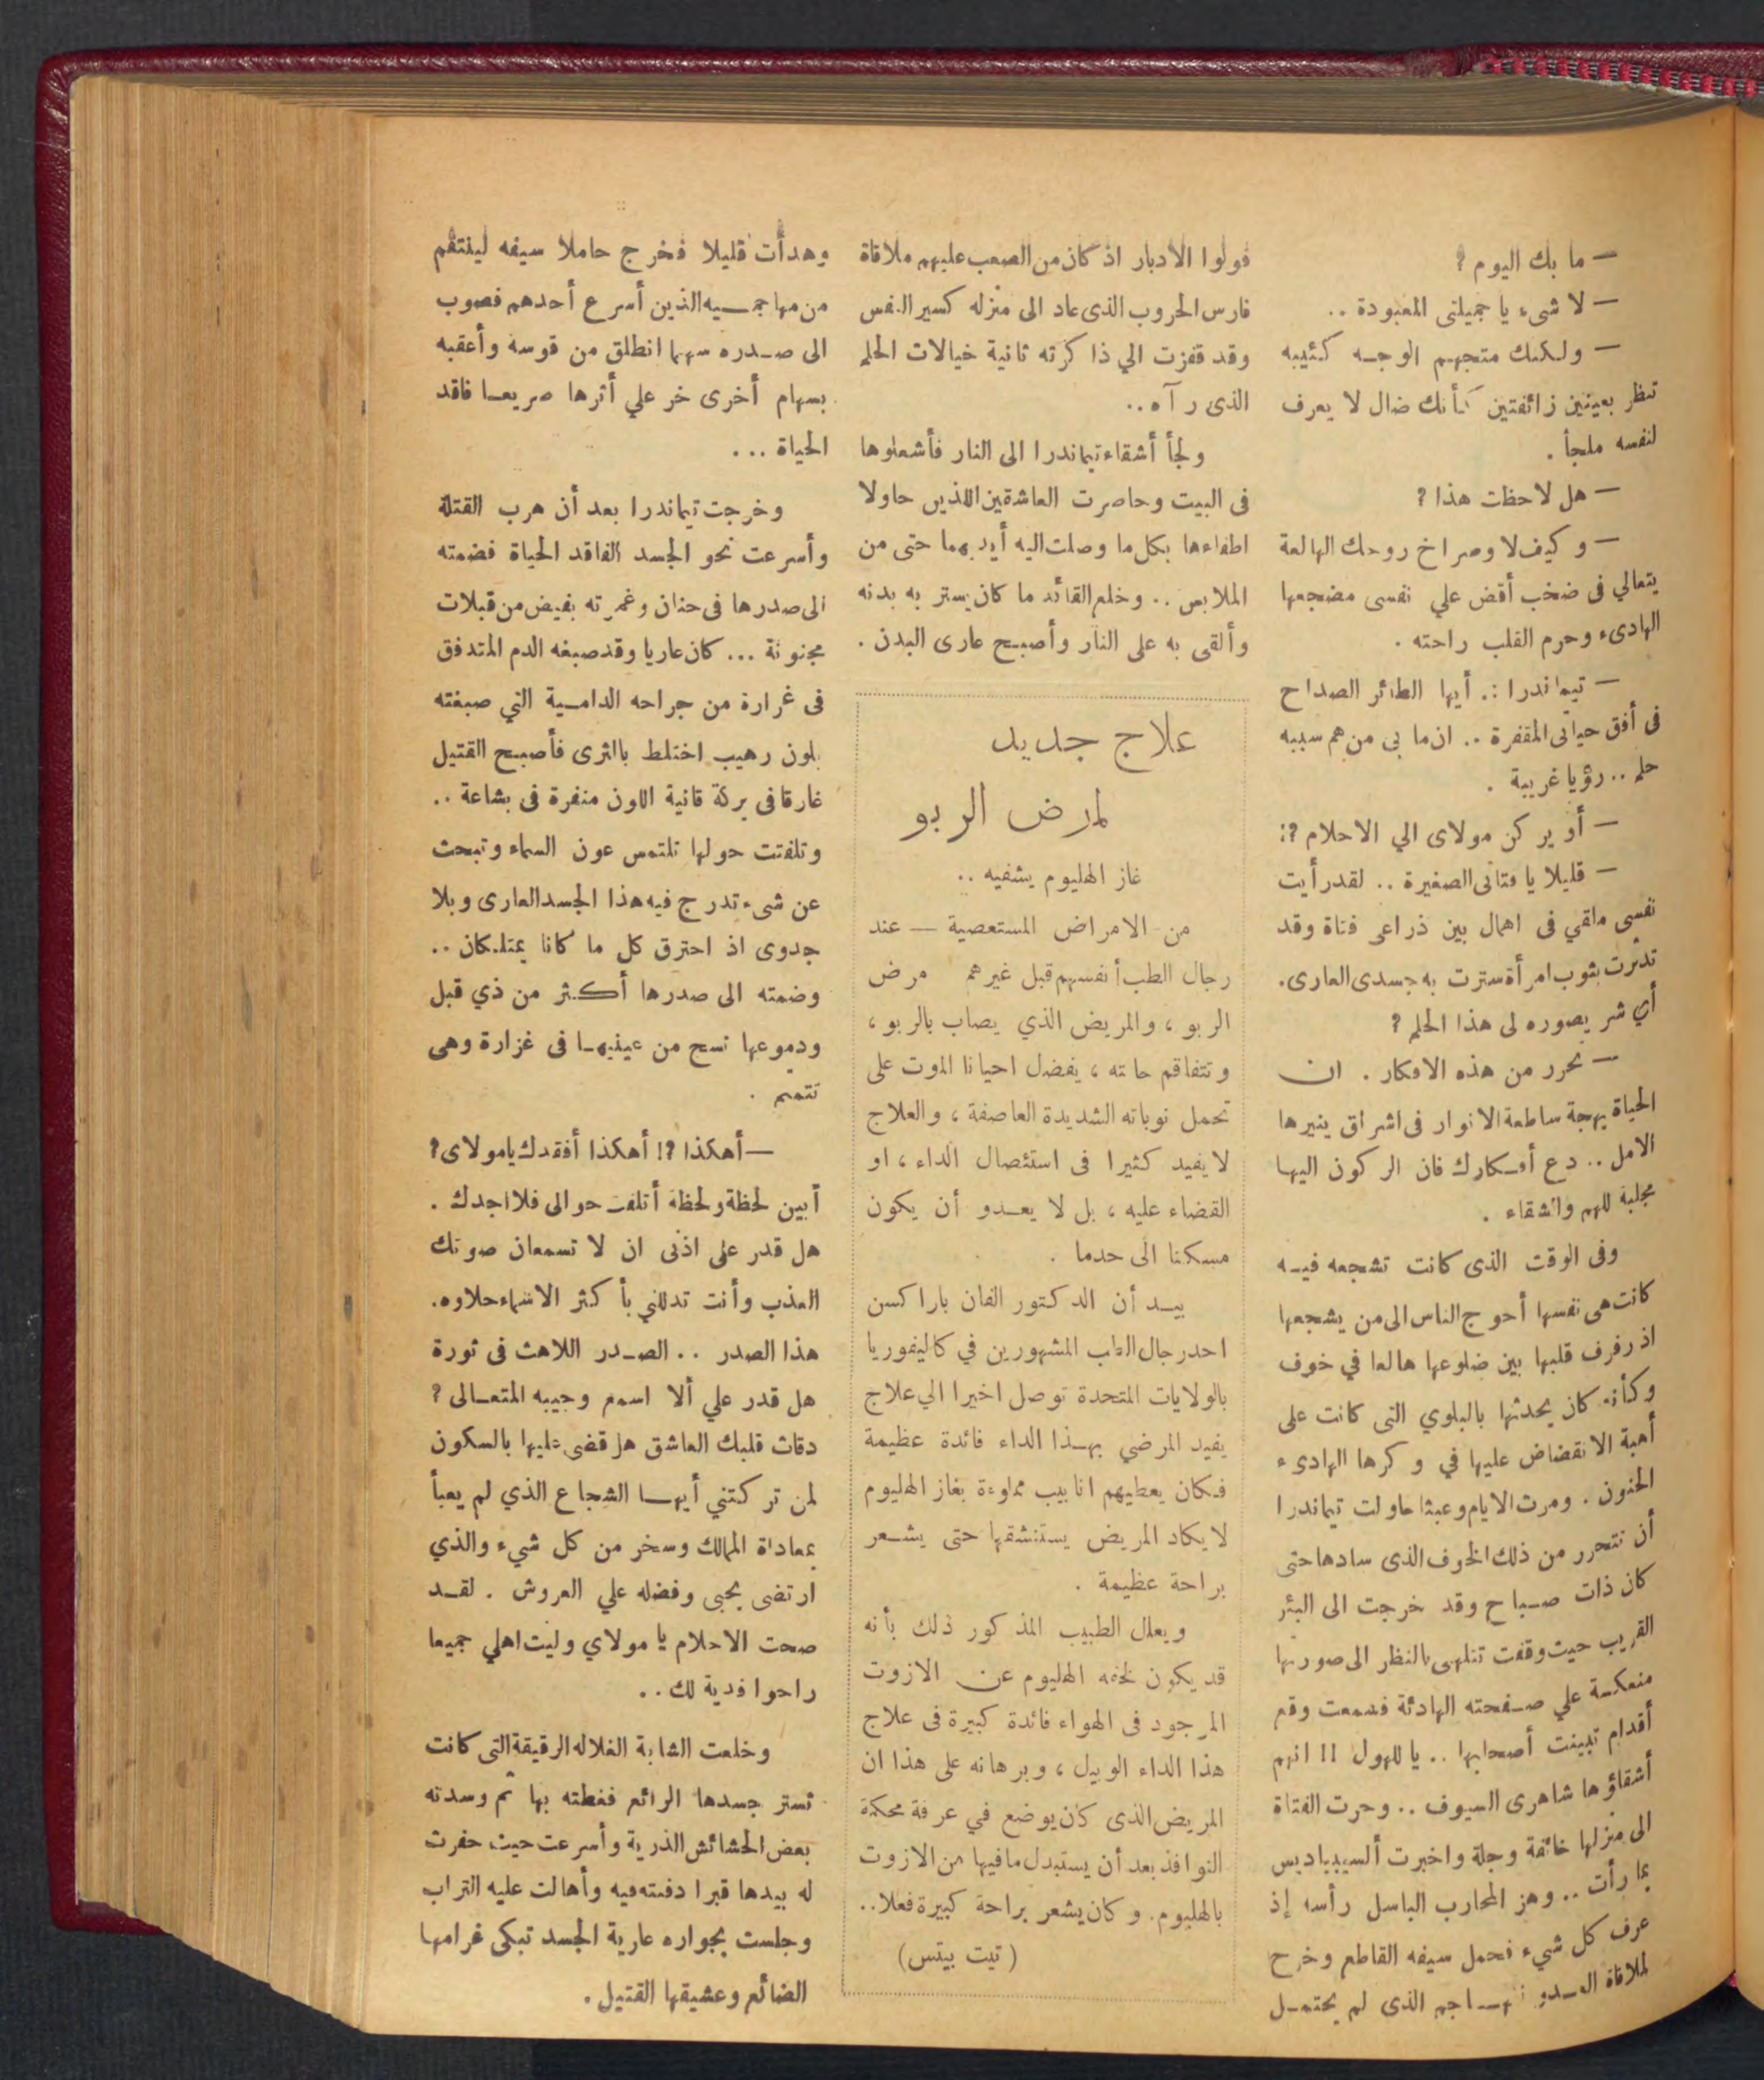 — ما بك اليوم ؟
— لا شىء يا جميلتى المعبودة ..
— ولكنك متجهم الوجه كئيبه
تنظر بعينين زائغتين كأنك ضال لا يعرف
لنفسه ملجأ .
— هل لاحظت هذا ؟
— وكيف لا وصراخ روحك الهالعة
يتعالي فى صخب أقض علي نفسى مضجعها
الهادىء وحرم القلب راحته .
— تيماندرا .. أيها الطائر الصداح
فى أفق حياتى المقفرة .. ان ما بى من هم سببه
حلم .. رؤيا غريبة .
— أو يركن مولاى الي الاحلام ؟!
— قليلا يا فتاتى الصغيرة .. لقد رأيت
نفسى ملقي فى اهمال بين ذراعى فتاة وقد
تدثرت بثوب امرأة سترت به جسدى العارى.
أي شر يصوره لى هذا الحلم ؟
— تحرر من هذه الافكار . ان
الحياة بهجة ساطعة الانوار فى اشراق ينيرها
الامل .. دع أفكارك فان الركون اليها
مجلبة للهم والشقاء .
وفى الوقت الذى كانت تشجعه فيه
كانت هى نفسها أحوج الناس الى من يشجعها
اذ رفرف قلبها بين ضلوعها هالعا في خوف
وكأنه كان يحدثها بالبلوي التى كانت على
أهبة الانقضاض عليها في وكرها الهادىء
الحنون . ومرت الايام وعبثا حاولت تيماندرا
أن تتحرر من ذلك الخوف الذى سادها حتى
كان ذات صباح وقد خرجت الى البئر
القريب حيث وقفت تتلهى بالنظر الى صورتها
منعكسة علي صفحته الهادئة فسمعت وقع
أقدام تبينت أصحابها .. يا للهول !! انهم
أشقاؤها شاهرى السيوف .. وجرت الفتاة
الى منزلها خائفة وجلة واخبرت ألسيبياديس
بما رأت .. وهز المحارب الباسل رأسه إذ
عرف كل شيء فحمل سيفه القاطع وخرج
لملاقاة العدو المهاجم الذى لم يحتمل
فولوا الادبار اذ كان من الصعب عليهم ملاقاة
فارس الحروب الذى عاد الى منزله كسير النفس
وقد قفزت الي ذاكرته ثانية خيالات الحلم
الذى رآه ..
ولجأ أشقاء تيماندرا الى النار فأشعلوها
فى البيت وحاصرت العاشقين اللذين حاولا
اطفاءها بكل ما وصلت اليه أيديهما حتى من
الملابس .. وخلع القائد ما كان يستر به بدنه
وألقى به على النار وأصبح عارى البدن .
علاج جديد
لمرض الربو
غاز الهليوم يشفيه ..
من الامراض المستعصية — عند
رجال الطب أنفسهم قبل غيرهم مرض
الربو ، والمريض الذي يصاب بالربو ،
وتتفاقم حالته ، يفضل احيانا الموت على
تحمل نوباته الشديدة العاصفة ، والعلاج
لا يفيد كثيرا فى استئصال الداء ، او
القضاء عليه ، بل لا يعدو أن يكون
مسكنا الى حد ما .
بيد أن الدكتور الفان باراكسن
احد رجال الطب المشهورين في كاليفوريا
بالولايات المتحدة توصل اخيرا الي علاج
يفيد المرضي بهذا الداء فائدة عظيمة
فكان يعطيهم انابيب مملوءة بغاز الهليوم
لا يكاد المريض يستنشقها حتى يشعر
براحة عظيمة .
ويعلل الطبيب المذكور ذلك بأنه
قد يكون لخفة الهليوم عن الازوت
الموجود فى الهواء فائدة كبيرة فى علاج
هذا الداء الوبيل ، وبرهانه على هذا ان
المريض الذى كان يوضع في غرفة محكمة
النوافذ بعد أن يستبدل ما فيها من الازوت
بالهليوم . وكان يشعر براحة كبيرة فعلا ..
( تيت بيتس )
وهدأت قليلا فخرج حاملا سيفه لينتقم
من مهاجميه الذين أسرع أحدهم فصوب
الى صدره سهما انطلق من قوسه وأعقبه
بسهام أخرى خر علي أثرها صريعا فاقد
الحياة ...
وخرجت تيماندرا بعد أن هرب القتلة
وأسرعت نحو الجسد الفاقد الحياة فضمته
الى صدرها فى حنان وغمرته بفيض من قبلات
مجنونة ... كان عاريا وقد صبغه الدم المتدفق
فى غرارة من جراحه الدامية التي صبغته
بلون رهيب اختلط بالثرى فأصبح القتيل
غارقا فى بركة قانية اللون منفرة فى بشاعة ..
وتلفتت حولها تلتمس عون السماء وتبحث
عن شىء تدرج فيه هذا الجسد العارى وبلا
جدوى اذ احترق كل ما كانا يمتلكان ..
وضمته الى صدرها أكثر من ذي قبل
ودموعها تسح من عينيها فى غزارة وهى
تتمتم .
— أهكذا ؟! أهكذا أفقدك يا مولاى ؟
أبين لحظة ولحظة أتلفت حوالى فلا اجدك .
هل قدر على اذنى ان لا تسمعان صوتك
العذب وأنت تدللني بأكثر الاسماء حلاوه.
هذا الصدر .. الصدر اللاهث فى ثورة
هل قدر علي ألا اسمع وجيبه المتعالى ؟
دقات قلبك العاشق هل قضى عليها بالسكون
لمن تركتني أيها الشجاع الذي لم يعبأ
بمعاداة الممالك وسخر من كل شيء والذي
ارتضى بحبى وفضله علي العروش . لقد
صحت الاحلام يا مولاي وليت اهلي جميعا
راحوا فدية لك ..
وخلعت الشابة الغلاله الرقيقة التى كانت
تستر جسدها الرائع فغطته بها ثم وسدته
بعض الحشائش الذرية وأسرعت حيث حفرت
له بيدها قبرا دفنته فيه وأهالت عليه التراب
وجلست بجواره عارية الجسد تبكى غرامها
الضائع وعشيقها القتيل .